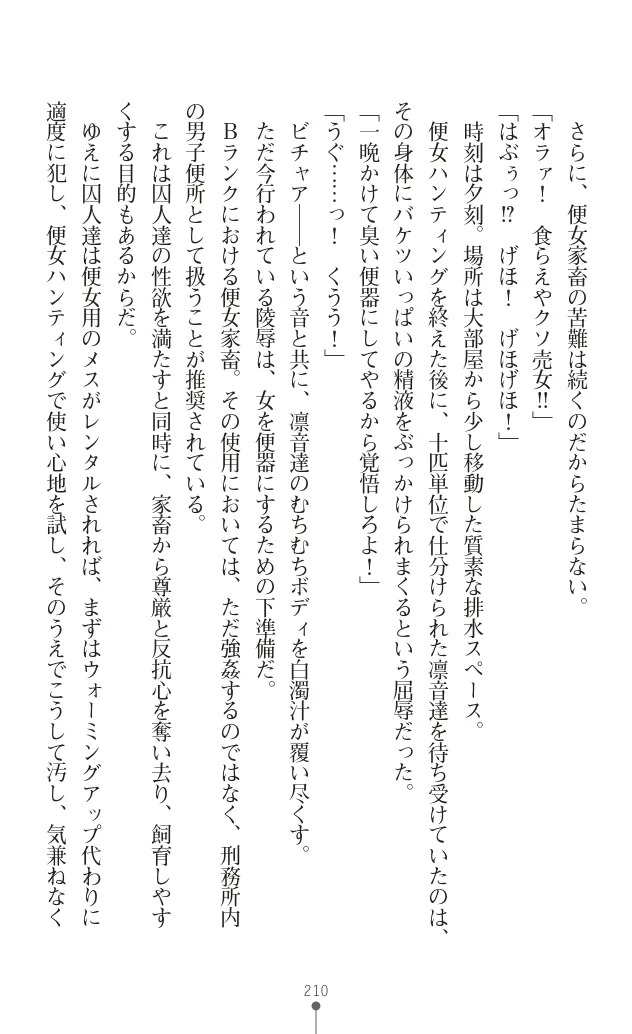 さらに、便女家畜の苦難は続くのだからたまらない。
「オラァ！　食らえやクソ売女!!」
「はぶぅっ!?　げほ！　げほげほ！」
時刻は夕刻。場所は大部屋から少し移動した質素な排水スペース。
便女ハンティングを終えた後に、十匹単位で仕分けられた凛音達を待ち受けていたのは、
その身体にバケツいっぱいの精液をぶっかけられまくるという屈辱だった。
「一晩かけて臭い便器にしてやるから覚悟しろよ！」
「うぐ……っ！　くうう！」
ビチャア――という音と共に、凛音達のむちむちボディを白濁汁が覆い尽くす。
ただ今行われている陵辱は、女を便器にするための下準備だ。
Ｂランクにおける便女家畜。その使用においては、ただ強姦するのではなく、刑務所内
の男子便所として扱うことが推奨されている。
これは囚人達の性欲を満たすと同時に、家畜から尊厳と反抗心を奪い去り、飼育しやす
くする目的もあるからだ。
ゆえに囚人達は便女用のメスがレンタルされれば、まずはウォーミングアップ代わりに
適度に犯し、便女ハンティングで使い心地を試し、そのうえでこうして汚し、気兼ねなく
210